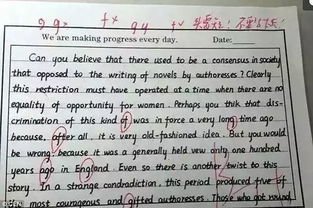 g g x f x g y f v
We are making progress every day. Date:
Can you believe that there used to be a consensus in society
that opposed to the writing of novels by authoresses? Clearly
this restriction must have operated at a time when there are no
equality of opportunity for women. Perhaps you thik that dis-
crimination of this kind of was in force a very long time ago
because, after all, it is very old-fashioned idea. But you would
be wrong, because it was a generally held view only one hundred
years ago in England. Even so there is another twist to this
story. In a strange condradiction, this period produced five of
most courageous and gifted authoresses. Those who got round